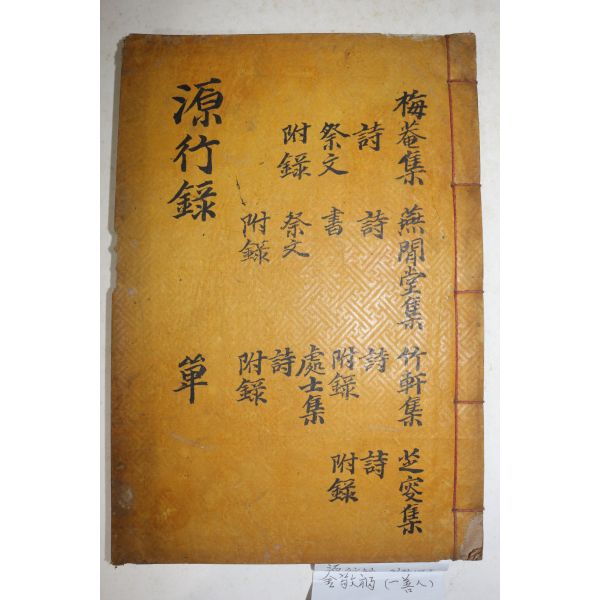 梅菴集
詩
祭文
附錄
燕閒堂集
詩
書
祭文
附錄
竹軒集
詩
附錄
處士集
詩
附錄
芝窆集
詩
附錄
源行錄
單
(一善人)